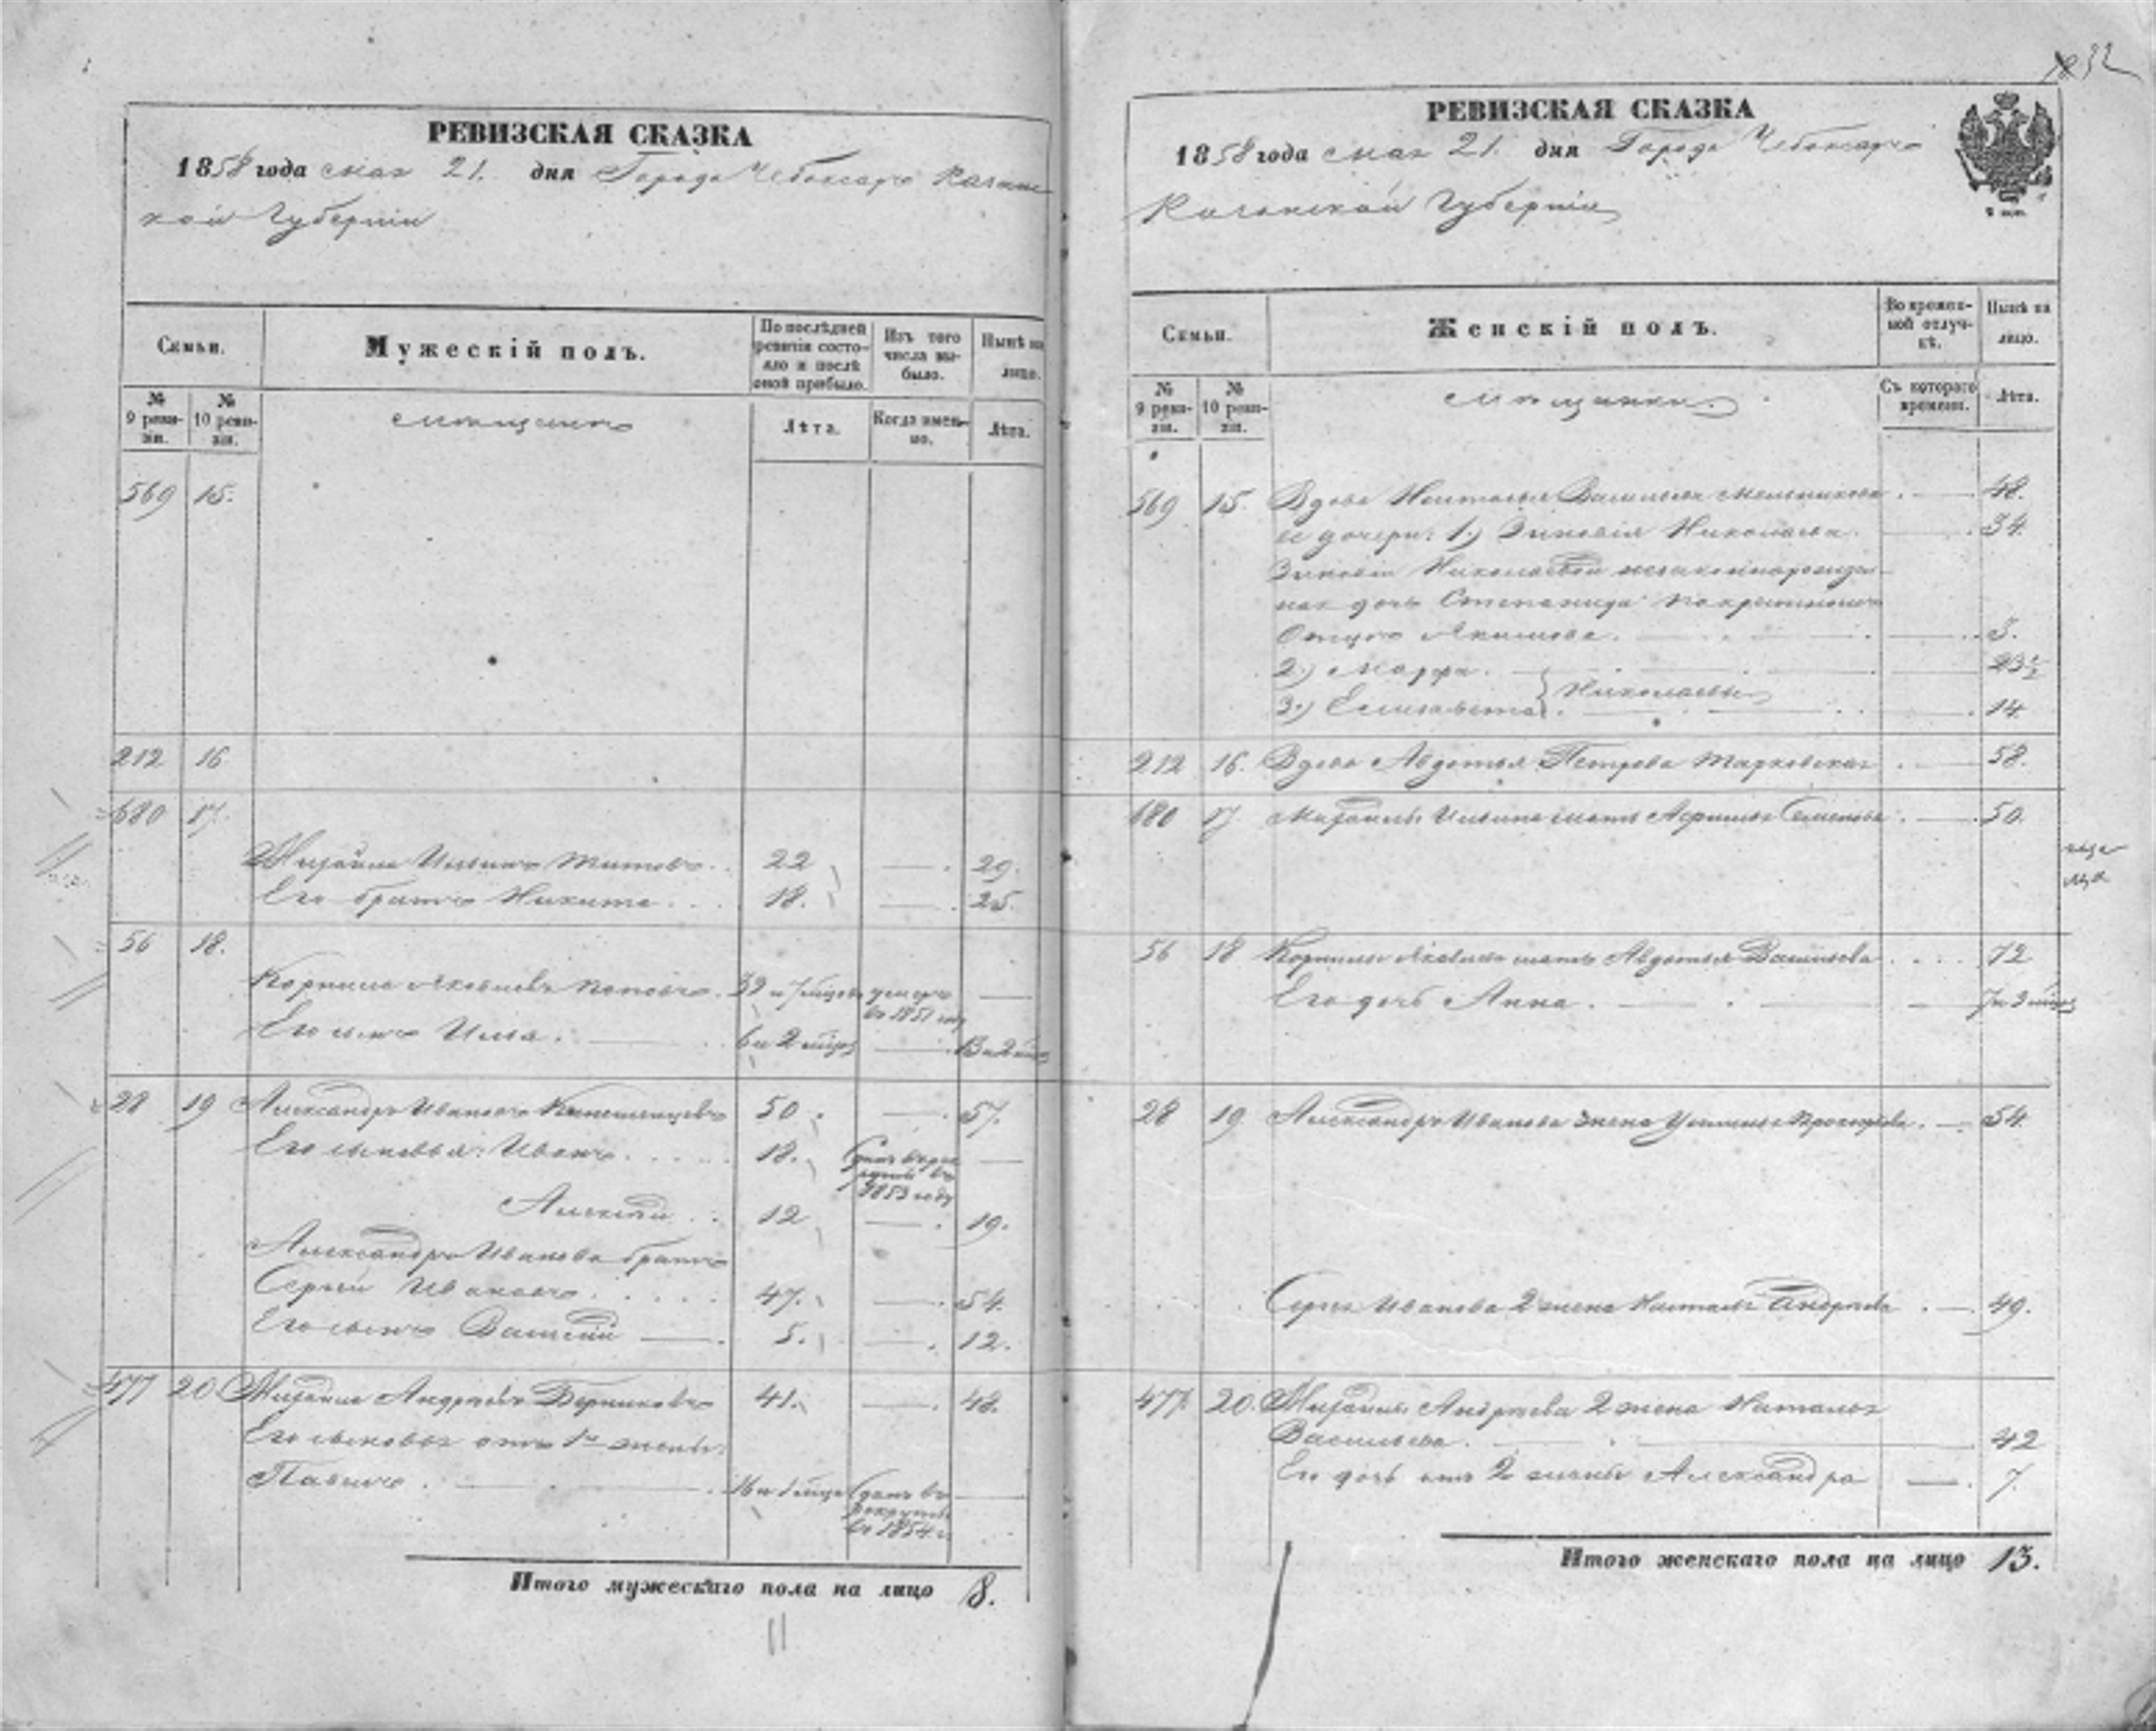 РЕВИЗСКАЯ СКАЗКА
1858 года мая 21. дня Города Чебоксаръ Казанс
кой Губерніи
Семьи.
Мужескій полъ.
По послѣдней ревизіи состояло и послѣ оной прибыло.
Изъ того числа выбыло.
Нынѣ на лицо.
№ 9 ревизіи.
№ 10 ревизіи.
мѣщане
Лѣта.
Когда именно.
Лѣта.
569 15.
212 16
680 17.
Михайла Ильинъ Титовъ. 22 29.
Его братъ Никита. 18. 25.
56 18.
Корнила Яковлевъ Поповъ. 39 и 7 мѣцовъ умеръ въ 1851 году
Его сынъ Илья. 6 и 2 мѣца 13 и 2 мѣца
28 19 Александръ Ивановъ 50 57.
Его сыновья: Иванъ. 18. Сданъ въ рекруты въ 1853 году
Алексѣй 12 19.
Александра Иванова братъ
Сергѣй Ивановъ 47. 54.
Его сынъ Василій 5. 12.
477 20 Михайла Андреевъ Берниковъ 41. 48.
Его сыновья отъ 1й жены:
Павелъ. 16 и 1 мѣцъ Сданъ въ рекруты въ 1854 г.
Итого мужескаго пола на лицо 8.
11
32
РЕВИЗСКАЯ СКАЗКА
1858 года мая 21. дня Города Чебоксаръ
Казанской Губерніи
Семьи.
Женскій полъ.
Во временной отлучкѣ.
Нынѣ на лицо.
№ 9 ревизіи.
№ 10 ревизіи.
мѣщанки.
Съ котораго времени.
Лѣта.
569 15 Вдова Наталья Васильева Мельникова 48.
ее дочери: 1.) Зиновія Николаева. 34.
Зиновіи Николаевой незаконнорожден-
ная дочь Степанида по крестному
Отцу Якимова. 3.
2.) Марфа. 23½
3.) Елизавета Николаевы 14.
212 16. Вдова Авдотья Петрова Марковская 58.
680 17 Михайлы Ильина мать Семенова 50.
56 18 Корнилы Яковлева мать Авдотья Васильева 72
Его дочь Анна. 7 и 3 мѣца
28 19 Александра Иванова жена Устинья 54.
Сергея Иванова 2 жена Наталья Андреева 49.
477. 20. Михайлы Андреева 2 жена Наталья
Васильева. 42
Его дочь отъ 2 жены Александра 7.
Итого женскаго пола на лицо 13.